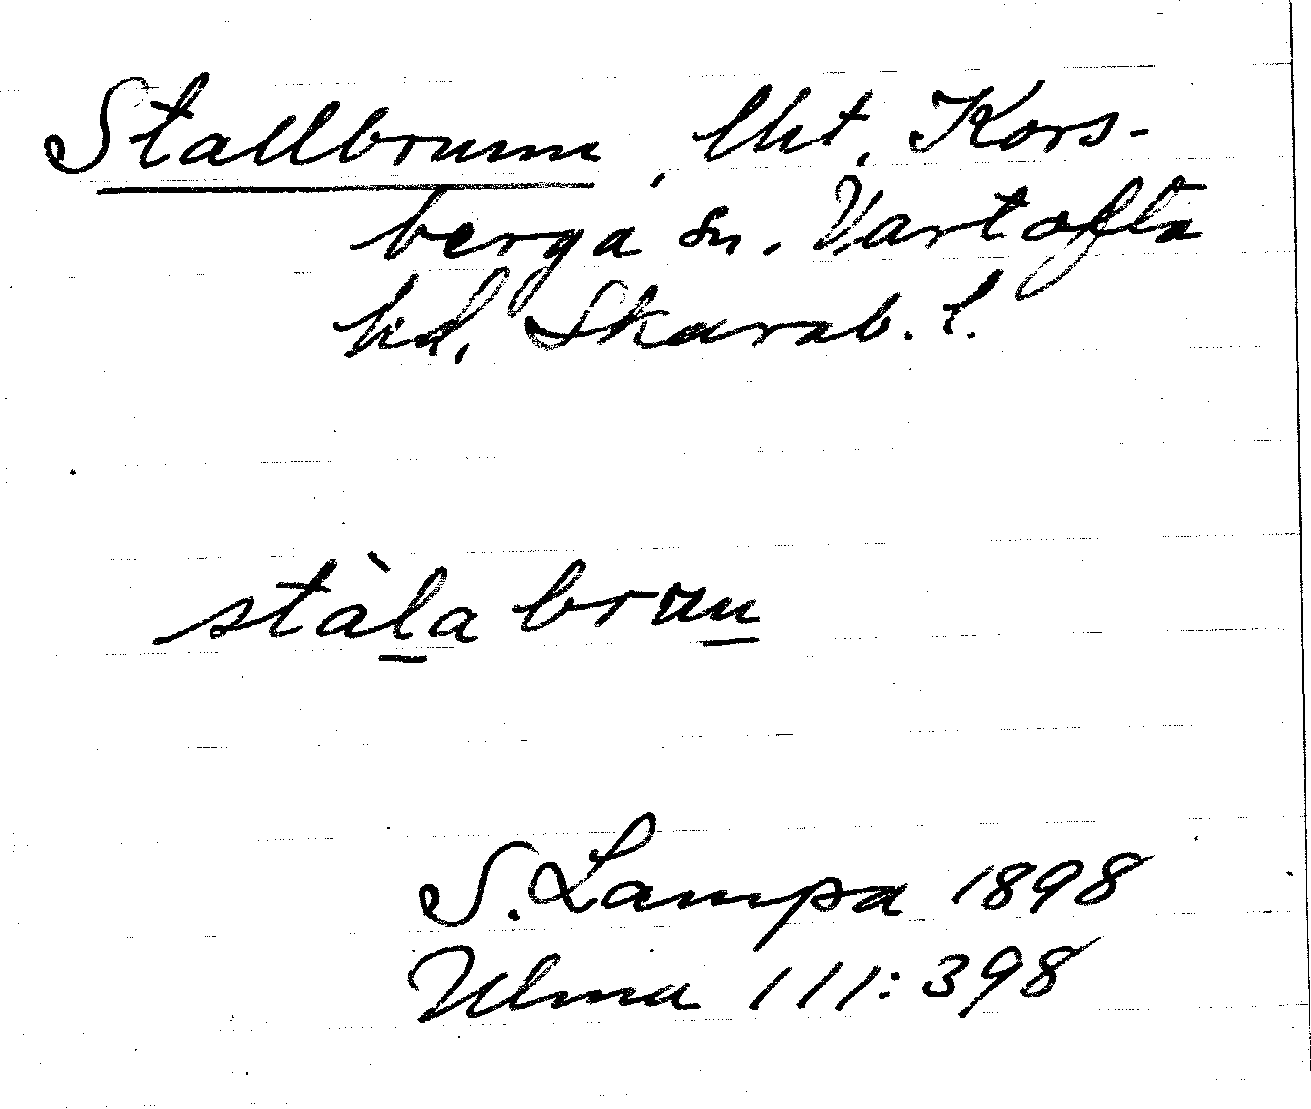 Stallbrunn, lht, Kors-
berga sn. Vartofta
hd, Skarab. l.
stàla brun
S. Lampa 1898
Ulma 111:398